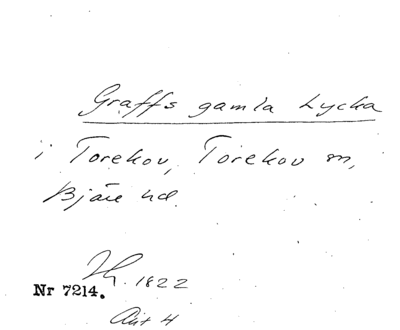 Graffs gamla Lycka
i Torekov, Torekov sn,
Bjäre hd.
Lh. 1822
Nr 7214.
Akt 4